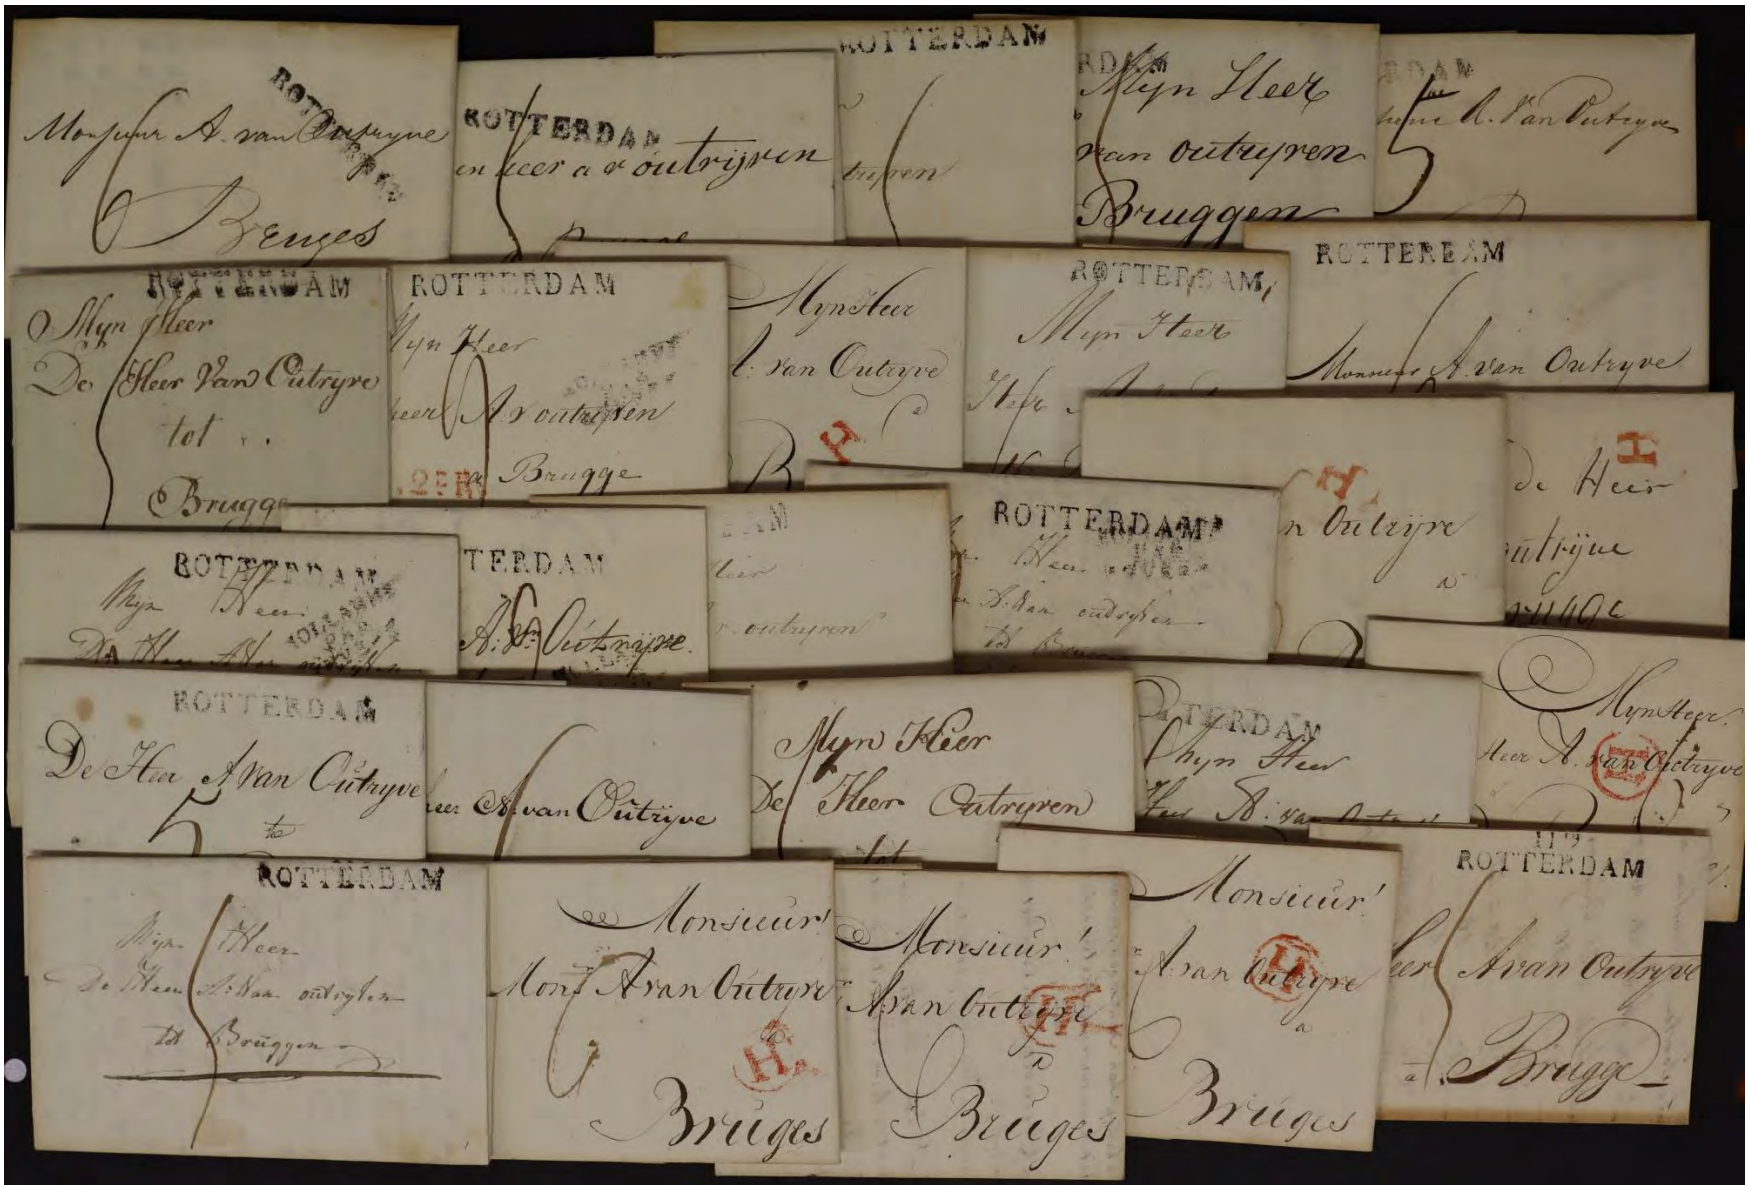 ROTTERDAM
Monsieur A. van Outryve
Bruges
ROTTERDAM
heer a v outrijven
ROTTERDAM
RDAM
Mijn Heer
van outryven
Bruggen
RDAM
A. Van Outryve
ROTTERDAM
Mijn Heer
De Heer Van Outryve
tot
Brugge
ROTTERDAM
Mijn Heer
heer A v outrijven
a Brugge
Mijn Heer
A. van Outryve
a
H
ROTTERDAM
Mijn Heer
Heer
ROTTERDAM
A. van Outryve
H
n Outrijve
a
H
De Heer
outrijve
ROTTERDAM
Mijn Heer
HOLLANDE
TERDAM
A. Vn Outrijve.
AM
Heer
v. outryven
ROTTERDAM
Heer
tot Brugge
ROTTERDAM
De Heer A van Outryve
te
heer A. van Outryve
Mijn Heer
De Heer Outrijven
tot
TTERDAM
Mijn Heer
Heer A. van
Mijn Heer
Heer A. van Outryve
H
ROTTERDAM
Mijn Heer
De Heer A. Van outryven
tot Bruggen
Monsieur!
Mons A van Outryve
a
H.
Bruges
Monsieur!
A van Outryve
a
H
Bruges
Monsieur!
A van Outryve
a
H
Bruges
ROTTERDAM
heer A van Outryve
a. Brugge